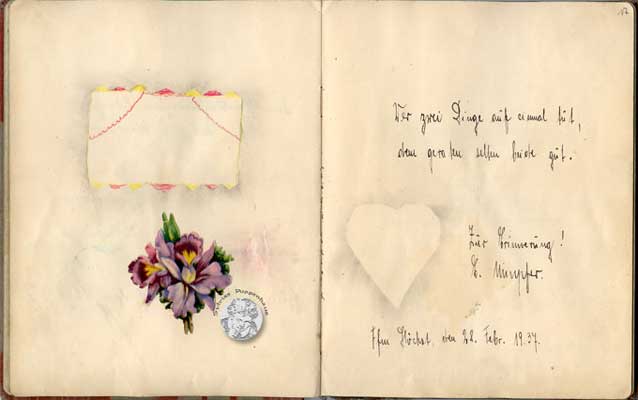 17
Wer zwei Dinge auf einmal tut,
dem geraten selten beide gut.
Zur Erinnerung!
Ffm Höchst, den 28. Febr. 1937.